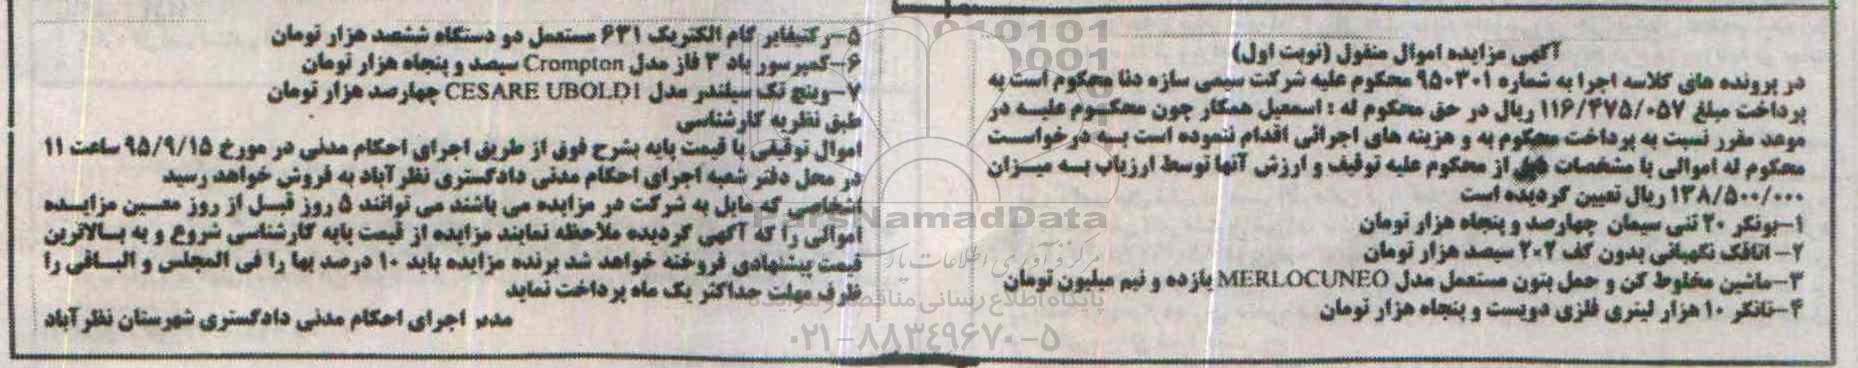 آگهی مزایده اموال منقول (نوبت اول)
در پرونده های کلاسه اجرا به شماره ۹۵۰۳۰۱ محکوم علیه شرکت سیمی سازه دنا محکوم است به
پرداخت مبلغ ۱۱۶/۴۷۵/۰۵۷ ریال در حق محکوم له : اسمعیل همکار چون محکوم علیه در
موعد مقرر نسبت به پرداخت محکوم به و هزینه های اجرائی اقدام ننموده است به درخواست
محکوم له اموالی با مشخصات از محکوم علیه توقیف و ارزش آنها توسط ارزیاب به میزان
۱۳۸/۵۰۰/۰۰۰ ریال تعیین گردیده است
۱-بونکر ۲۰ تنی سیمان چهارصد و پنجاه هزار تومان
۲- اتاقک نگهبانی بدون کف ۲×۲ سیصد هزار تومان
۳-ماشین مخلوط کن و حمل بتون مستعمل مدل MERLOCUNEO یازده و نیم میلیون تومان
۴-تانکر ۱۰ هزار لیتری فلزی دویست و پنجاه هزار تومان
۵-رکتیفایر گام الکتریک ۶۳۱ مستعمل دو دستگاه ششصد هزار تومان
۶-کمپرسور باد ۳ فاز مدل Crompton سیصد و پنجاه هزار تومان
۷-وینچ تک سیلندر مدل CESARE UBOLDI چهارصد هزار تومان
طبق نظریه کارشناسی
اموال توقیفی با قیمت پایه بشرح فوق از طریق اجرای احکام مدنی در مورخ ۹۵/۹/۱۵ ساعت ۱۱
در محل دفتر شعبه اجرای احکام مدنی دادگستری نظرآباد به فروش خواهد رسید
اشخاصی که مایل به شرکت در مزایده می باشند می توانند ۵ روز قبل از روز معین مزایده
اموالی را که آگهی گردیده ملاحظه نمایند مزایده از قیمت پایه کارشناسی شروع و به بالاترین
قیمت پیشنهادی فروخته خواهد شد برنده مزایده باید ۱۰ درصد بها را فی المجلس و الباقی را
ظرف مهلت حداکثر یک ماه پرداخت نماید
مدیر اجرای احکام مدنی دادگستری شهرستان نظرآباد
ParsNamadData
پایگاه اطلاع رسانی
۰۲۱-۸۸۳۴۹۶۷۰-۵